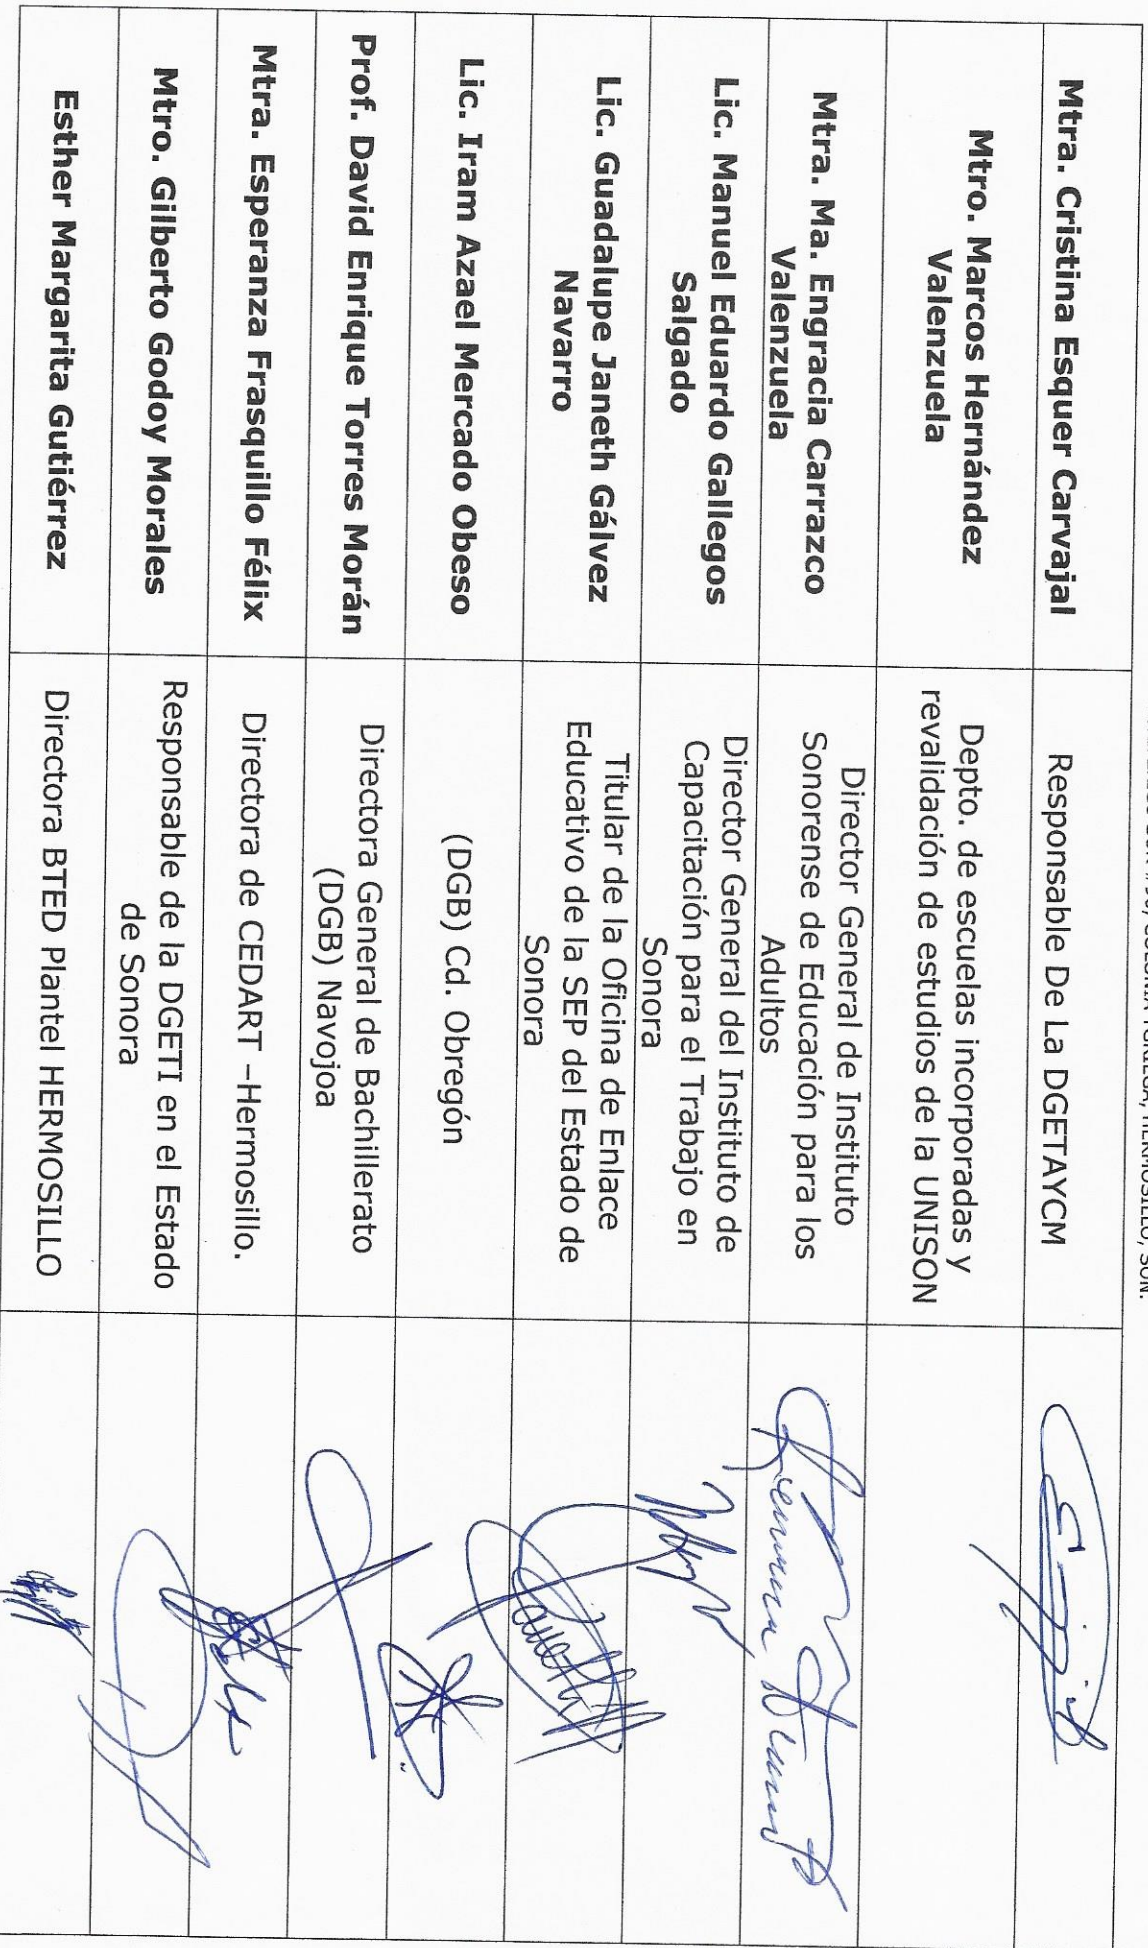 COLONIA YGRIEGA, HERMOSILLO, SON.
Mtra. Cristina Esquer Carvajal
Responsable De La DGETAYCM
Mtro. Marcos Hernández
Valenzuela
Depto. de escuelas incorporadas y
revalidación de estudios de la UNISON
Mtra. Ma. Engracia Carrazco
Valenzuela
Director General de Instituto
Sonorense de Educación para los
Adultos
Lic. Manuel Eduardo Gallegos
Salgado
Director General del Instituto de
Capacitación para el Trabajo en
Sonora
Lic. Guadalupe Janeth Gálvez
Navarro
Titular de la Oficina de Enlace
Educativo de la SEP del Estado de
Sonora
Lic. Iram Azael Mercado Obeso
(DGB) Cd. Obregón
Prof. David Enrique Torres Morán
Directora General de Bachillerato
(DGB) Navojoa
Mtra. Esperanza Frasquillo Félix
Directora de CEDART –Hermosillo.
Mtro. Gilberto Godoy Morales
Responsable de la DGETI en el Estado
de Sonora
Esther Margarita Gutiérrez
Directora BTED Plantel HERMOSILLO